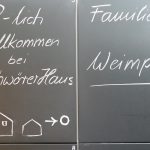 -lich
llkommen
bei
chwörerHaus
Famili
Weimp